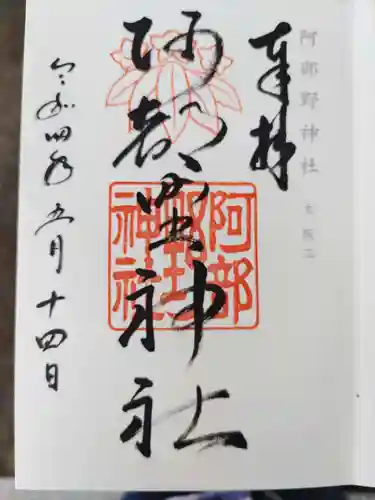 奉拝
阿部野神社
阿部野神社
阿部野神社
令和四年五月十四日